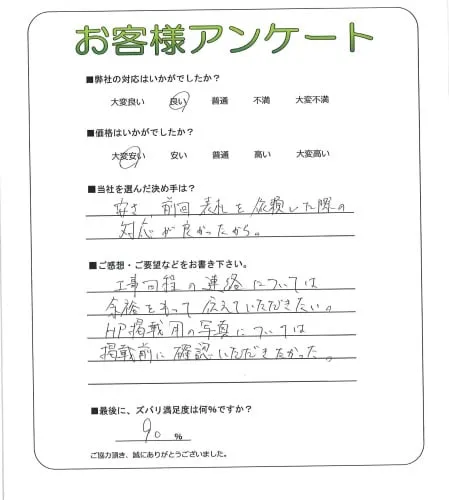 お客様アンケート
■弊社の対応はいかがでしたか?
大変良い 良い 普通 不満 大変不満
■価格はいかがでしたか?
大変安い 安い 普通 高い 大変高い
■当社を選んだ決め手は?
安さ、前回表札を依頼した際の
対応が良かったから。
■ご感想・ご要望などをお書き下さい。
工事日程の連絡については
余裕をもって伝えていただきたい。
HP掲載用の写真については
掲載前に確認いただきたかった。
■最後に、ズバリ満足度は何%ですか?
90 %
ご協力頂き、誠にありがとうございました。